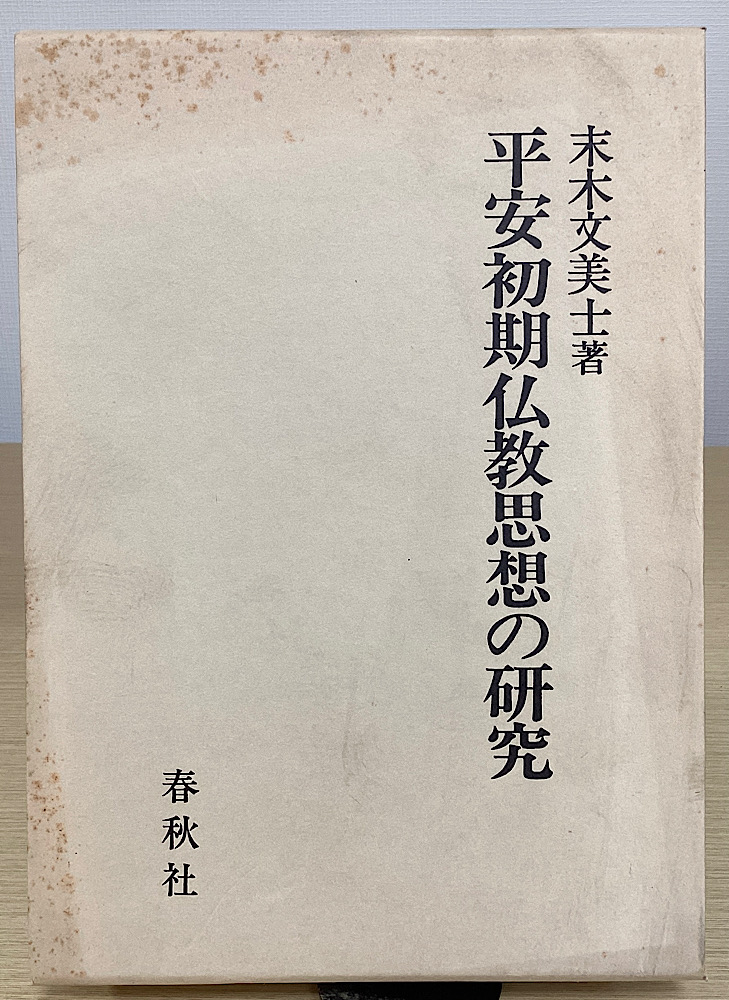 末木文美士著
平安初期仏教思想の研究
春秋社